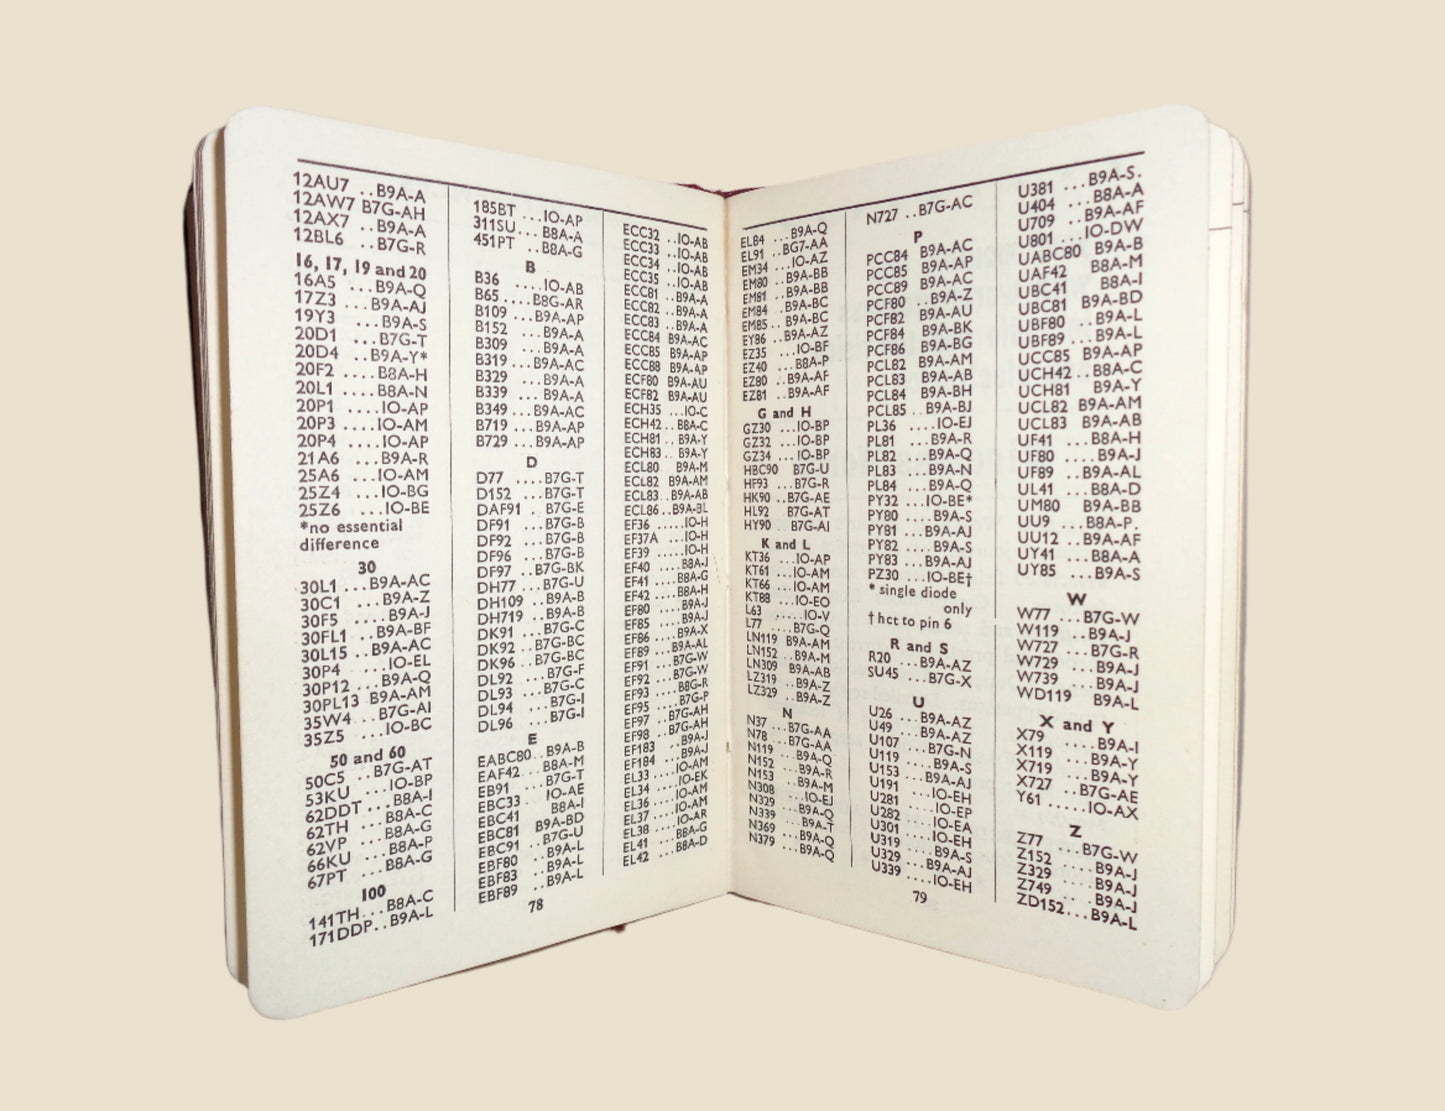 12AU7 ..B9A-A
12AW7 B7G-AH
12AX7 ..B9A-A
12BL6 ..B7G-R
16, 17, 19 and 20
16A5 ...B9A-Q
17Z3 ...B9A-AJ
19Y3 ...B9A-S
20D1 ...B7G-T
20D4 ..B9A-Y*
20F2 ....B8A-H
20L1 ....B8A-N
20P1 ....IO-AP
20P3 ....IO-AM
20P4 ....IO-AP
21A6 ...B9A-R
25A6 ...IO-AM
25Z4 ...IO-BG
25Z6 ....IO-BE
*no essential
difference
30
30L1 ...B9A-AC
30C1 ...B9A-Z
30F5 ....B9A-J
30FL1 ..B9A-BF
30L15 ..B9A-AC
30P4 ....IO-EL
30P12 ...B9A-Q
30PL13 B9A-AM
35W4 ..B7G-AI
35Z5 ...IO-BC
50 and 60
50C5 ..B7G-AT
53KU ...IO-BP
62DDT ...B8A-I
62TH ...B8A-C
62VP ...B8A-G
66KU ...B8A-P
67PT ...B8A-G
100
141TH...B8A-C
171DDP..B9A-L
185BT ...IO-AP
311SU...B8A-A
451PT ..B8A-G
B
B36 ....IO-AB
B65 ....B8G-AR
B109 ...B9A-AP
B152 ...B9A-A
B309 ...B9A-A
B319 ...B9A-AC
B329 ...B9A-A
B339 ...B9A-A
B349 ...B9A-AC
B719 ...B9A-AP
B729 ...B9A-AP
D
D77 ....B7G-T
D152 ...B7G-T
DAF91 . B7G-E
DF91 ...B7G-B
DF92 ...B7G-B
DF96 ...B7G-B
DF97 ..B7G-BK
DH77 ...B7G-U
DH109 ..B9A-B
DH719 ..B9A-B
DK91 ...B7G-C
DK92 ..B7G-BC
DK96 ..B7G-BC
DL92 ...B7G-F
DL93 ...B7G-C
DL94 ...B7G-I
DL96 ...B7G-I
E
EABC80..B9A-B
EAF42 ..B8A-M
EB91 ...B7G-T
EBC33 ..IO-AE
EBC41 B8A-I
EBC81 B9A-BD
EBC91 ..B7G-U
EBF80 ..B9A-L
EBF83 ..B9A-L
EBF89 ..B9A-L
ECC32 ..IO-AB
ECC33 ..IO-AB
ECC34 ..IO-AB
ECC35 ..IO-AB
ECC81 ..B9A-A
ECC82 ..B9A-A
ECC83 ..B9A-A
ECC84 B9A-AC
ECC85 B9A-AP
ECC88 B9A-AP
ECF80 B9A-AU
ECF82 B9A-AU
ECH35 ...IO-C
ECH42..B8A-C
ECH81 ..B9A-Y
ECH83 ..B9A-Y
ECL80 B9A-M
ECL82 B9A-AM
ECL83 ..B9A-AB
ECL86..B9A-BL
EF36 .....IO-H
EF37A ...IO-H
EF39 ....IO-H
EF40 ....B8A-J
EF41 ....B8A-G
EF42 ....B8A-H
EF80 ....B9A-J
EF85 ....B9A-J
EF86 ....B9A-X
EF89 ...B9A-AL
EF91 ...B7G-W
EF92 ...B7G-W
EF93 ....B8G-R
EF95 ....B7G-P
EF97 ..B7G-AH
EF98 ..B7G-AH
EF183 ...B9A-J
EF184 ...B9A-J
EL33 ....IO-AM
EL34 ....IO-EK
EL36 ....IO-AM
EL37 ....IO-AM
EL38 ....IO-AR
EL41 ....B8A-G
EL42 ....B8A-D
78
EL84 ...B9A-Q
EL91 ...BG7-AA
EM34 ...IO-AZ
EM80 ..B9A-BB
EM81 ..B9A-BB
EM84 ..B9A-BC
EM85 ..B9A-BC
EY86 ..B9A-AZ
EZ35 ...IO-BF
EZ40 ...B8A-P
EZ80 ..B9A-AF
EZ81 ..B9A-AF
G and H
GZ30 ...IO-BP
GZ32 ...IO-BP
GZ34 ...IO-BP
HBC90 B7G-U
HF93 ...B7G-R
HK90 ..B7G-AE
HL92 B7G-AT
HY90 B7G-AI
K and L
KT36 ...IO-AP
KT61 ...IO-AM
KT66 ...IO-AM
KT88 ...IO-EO
L63 .....IO-V
L77 ....B7G-Q
LN119 B9A-AM
LN152 ..B9A-M
LN309 B9A-AB
LZ319 ..B9A-Z
LZ329 ..B9A-Z
N
N37 ...B7G-AA
N78 ...B7G-AA
N119 ...B9A-Q
N152 ...B9A-R
N153 ...B9A-M
N308 ...IO-EJ
N329 ...B9A-Q
N339 ...B9A-T
N369 ...B9A-Q
N379 ...B9A-Q
N727 ..B7G-AC
P
PCC84 B9A-AC
PCC85 B9A-AP
PCC89 B9A-AC
PCF80 ..B9A-Z
PCF82 B9A-AU
PCF84 B9A-BK
PCF86 B9A-BG
PCL82 B9A-AM
PCL83 B9A-AB
PCL84 B9A-BH
PCL85 ..B9A-BJ
PL36 ....IO-EJ
PL81 ...B9A-R
PL82 ...B9A-Q
PL83 ...B9A-N
PL84 ...B9A-Q
PY32 ...IO-BE*
PY80 ....B9A-S
PY81 ...B9A-AJ
PY82 ....B9A-S
PY83 ...B9A-AJ
PZ30 ...IO-BE†
* single diode
only
† hct to pin 6
R and S
R20 ...B9A-AZ
SU45 ...B7G-X
U
U26 ...B9A-AZ
U49 ...B9A-AZ
U107 ...B7G-N
U119 ...B9A-S
U153 ...B9A-AJ
U191 ....IO-EH
U281 ....IO-EP
U282 ....IO-EA
U301 ....IO-EH
U319 ...B9A-S
U329 ...B9A-AJ
U339 ....IO-EH
79
U381 ...B9A-S.
U404 ...B8A-A
U709 ..B9A-AF
U801 ...IO-DW
UABC80 B9A-B
UAF42 B8A-M
UBC41 B8A-I
UBC81 B9A-BD
UBF80 ..B9A-L
UBF89 ...B9A-L
UCC85 B9A-AP
UCH42..B8A-C
UCH81 B9A-Y
UCL82 B9A-AM
UCL83 B9A-AB
UF41 ...B8A-H
UF80 ....B9A-J
UF89 ...B9A-AL
UL41 ...B8A-D
UM80 B9A-BB
UU9 ...B8A-P.
UU12 ..B9A-AF
UY41 ...B8A-A
UY85 ...B9A-S
W
W77 ...B7G-W
W119 ..B9A-J
W727 ...B7G-R
W729 ...B9A-J
W739 ...B9A-J
WD119 B9A-L
X and Y
X79 ....B9A-I
X119 ...B9A-Y
X719 ...B9A-Y
X727 ..B7G-AE
Y61 .....IO-AX
Z
Z77 ...B7G-W
Z152 ....B9A-J
Z329 ....B9A-J
Z749 ....B9A-J
ZD152...B9A-L